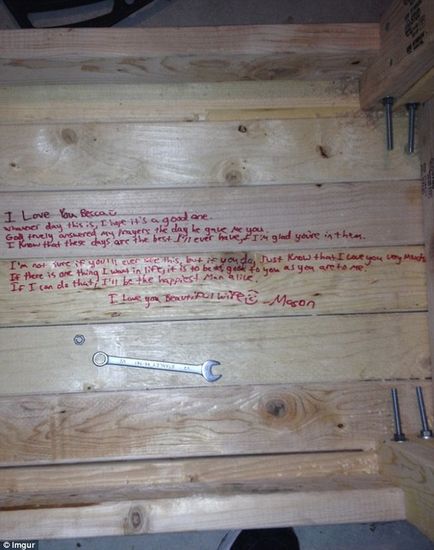 I Love You Besca
Whatever day this is, I hope it's a good one.
God truely answered my prayers the day he gave me you.
I know that these days are the best I'll ever have, & I'm glad you're in them.
I'm not sure if you'll ever see this, but if you do, Just Know that I Love you very much.
If there is one thing I want in life, it is to be as good to you as you are to me.
If I can do that, I'll be the happiest Man alive.
I Love you Beautiful Wife - Mason
STANLEY
1/2
© Imgur